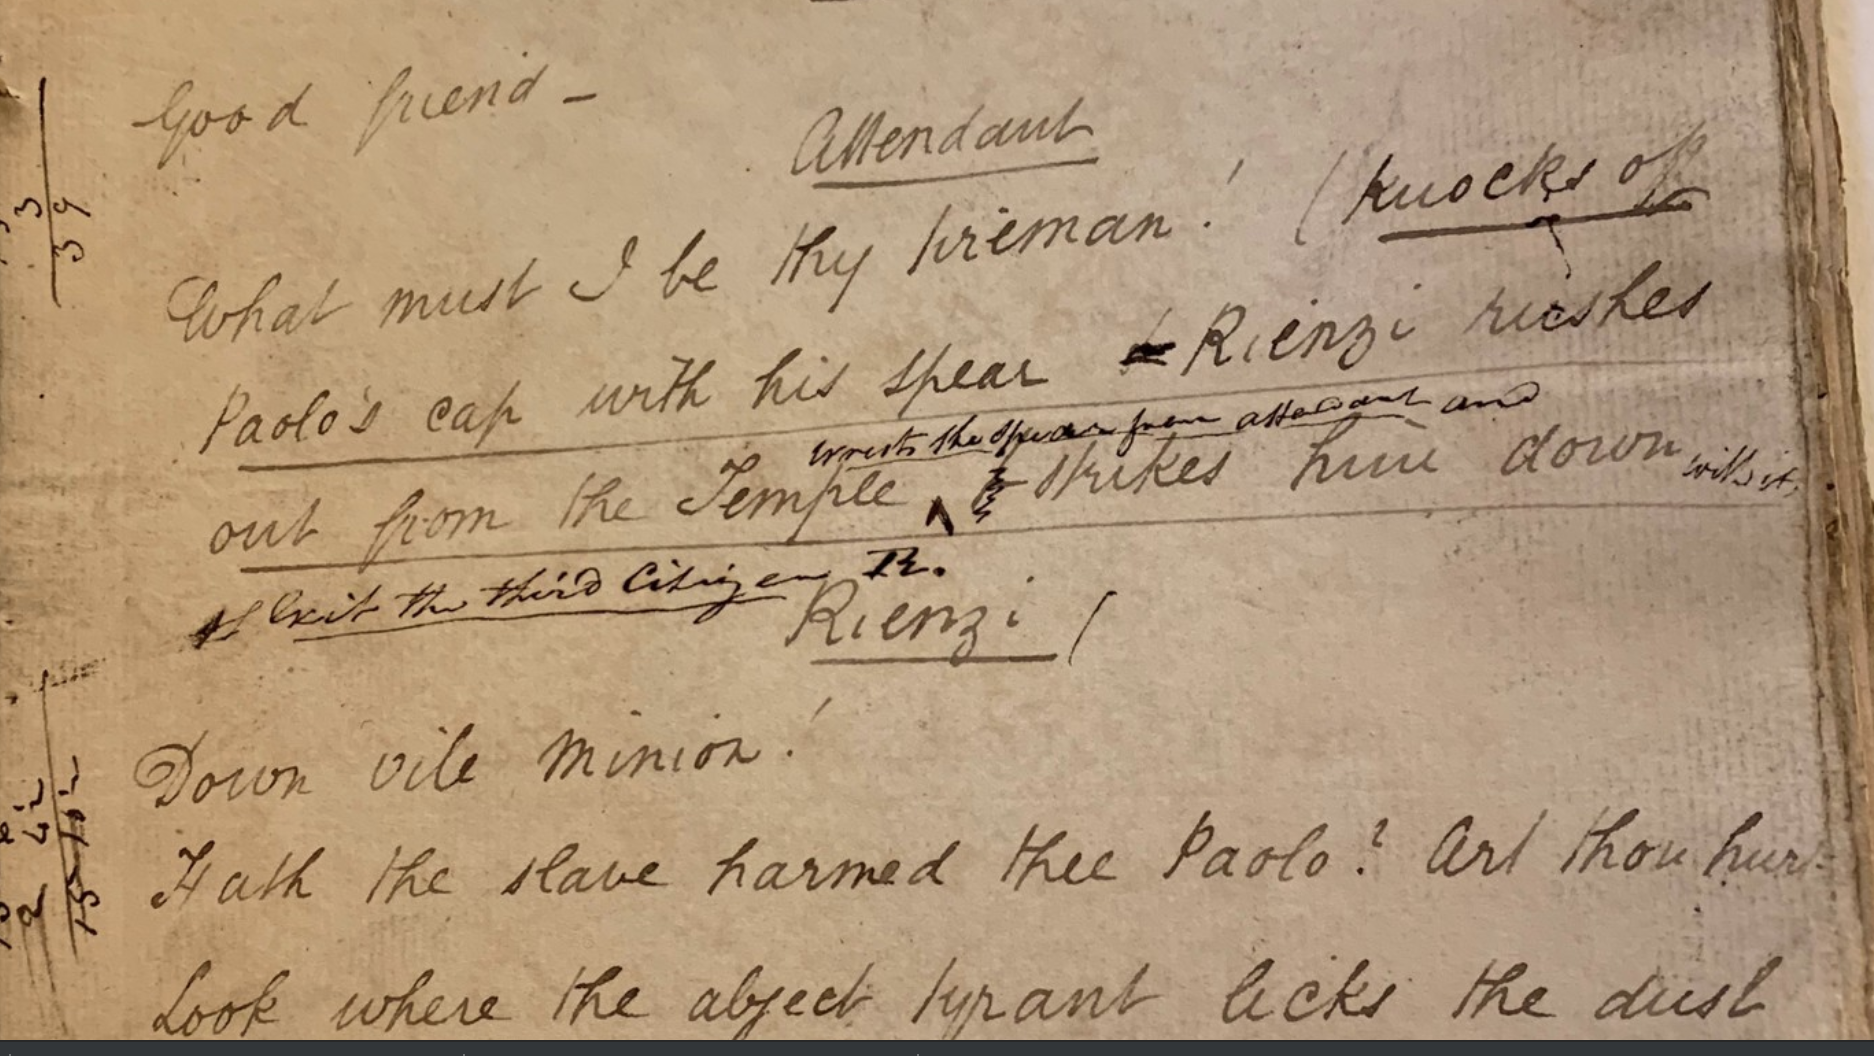 Good friend –
Attendant
What must I be thy tireman! (Knocks off
Paolo's cap with his spear Rienzi rushes
wrests the spear from attendant and
out from the Temple ^ strikes him down with it.
Exit the third Citizen R.
Rienzi (
Down vile minion!
Hath the slave harmed thee Paolo? Art thou hurt
Look where the abject tyrant licks the dust
3
39